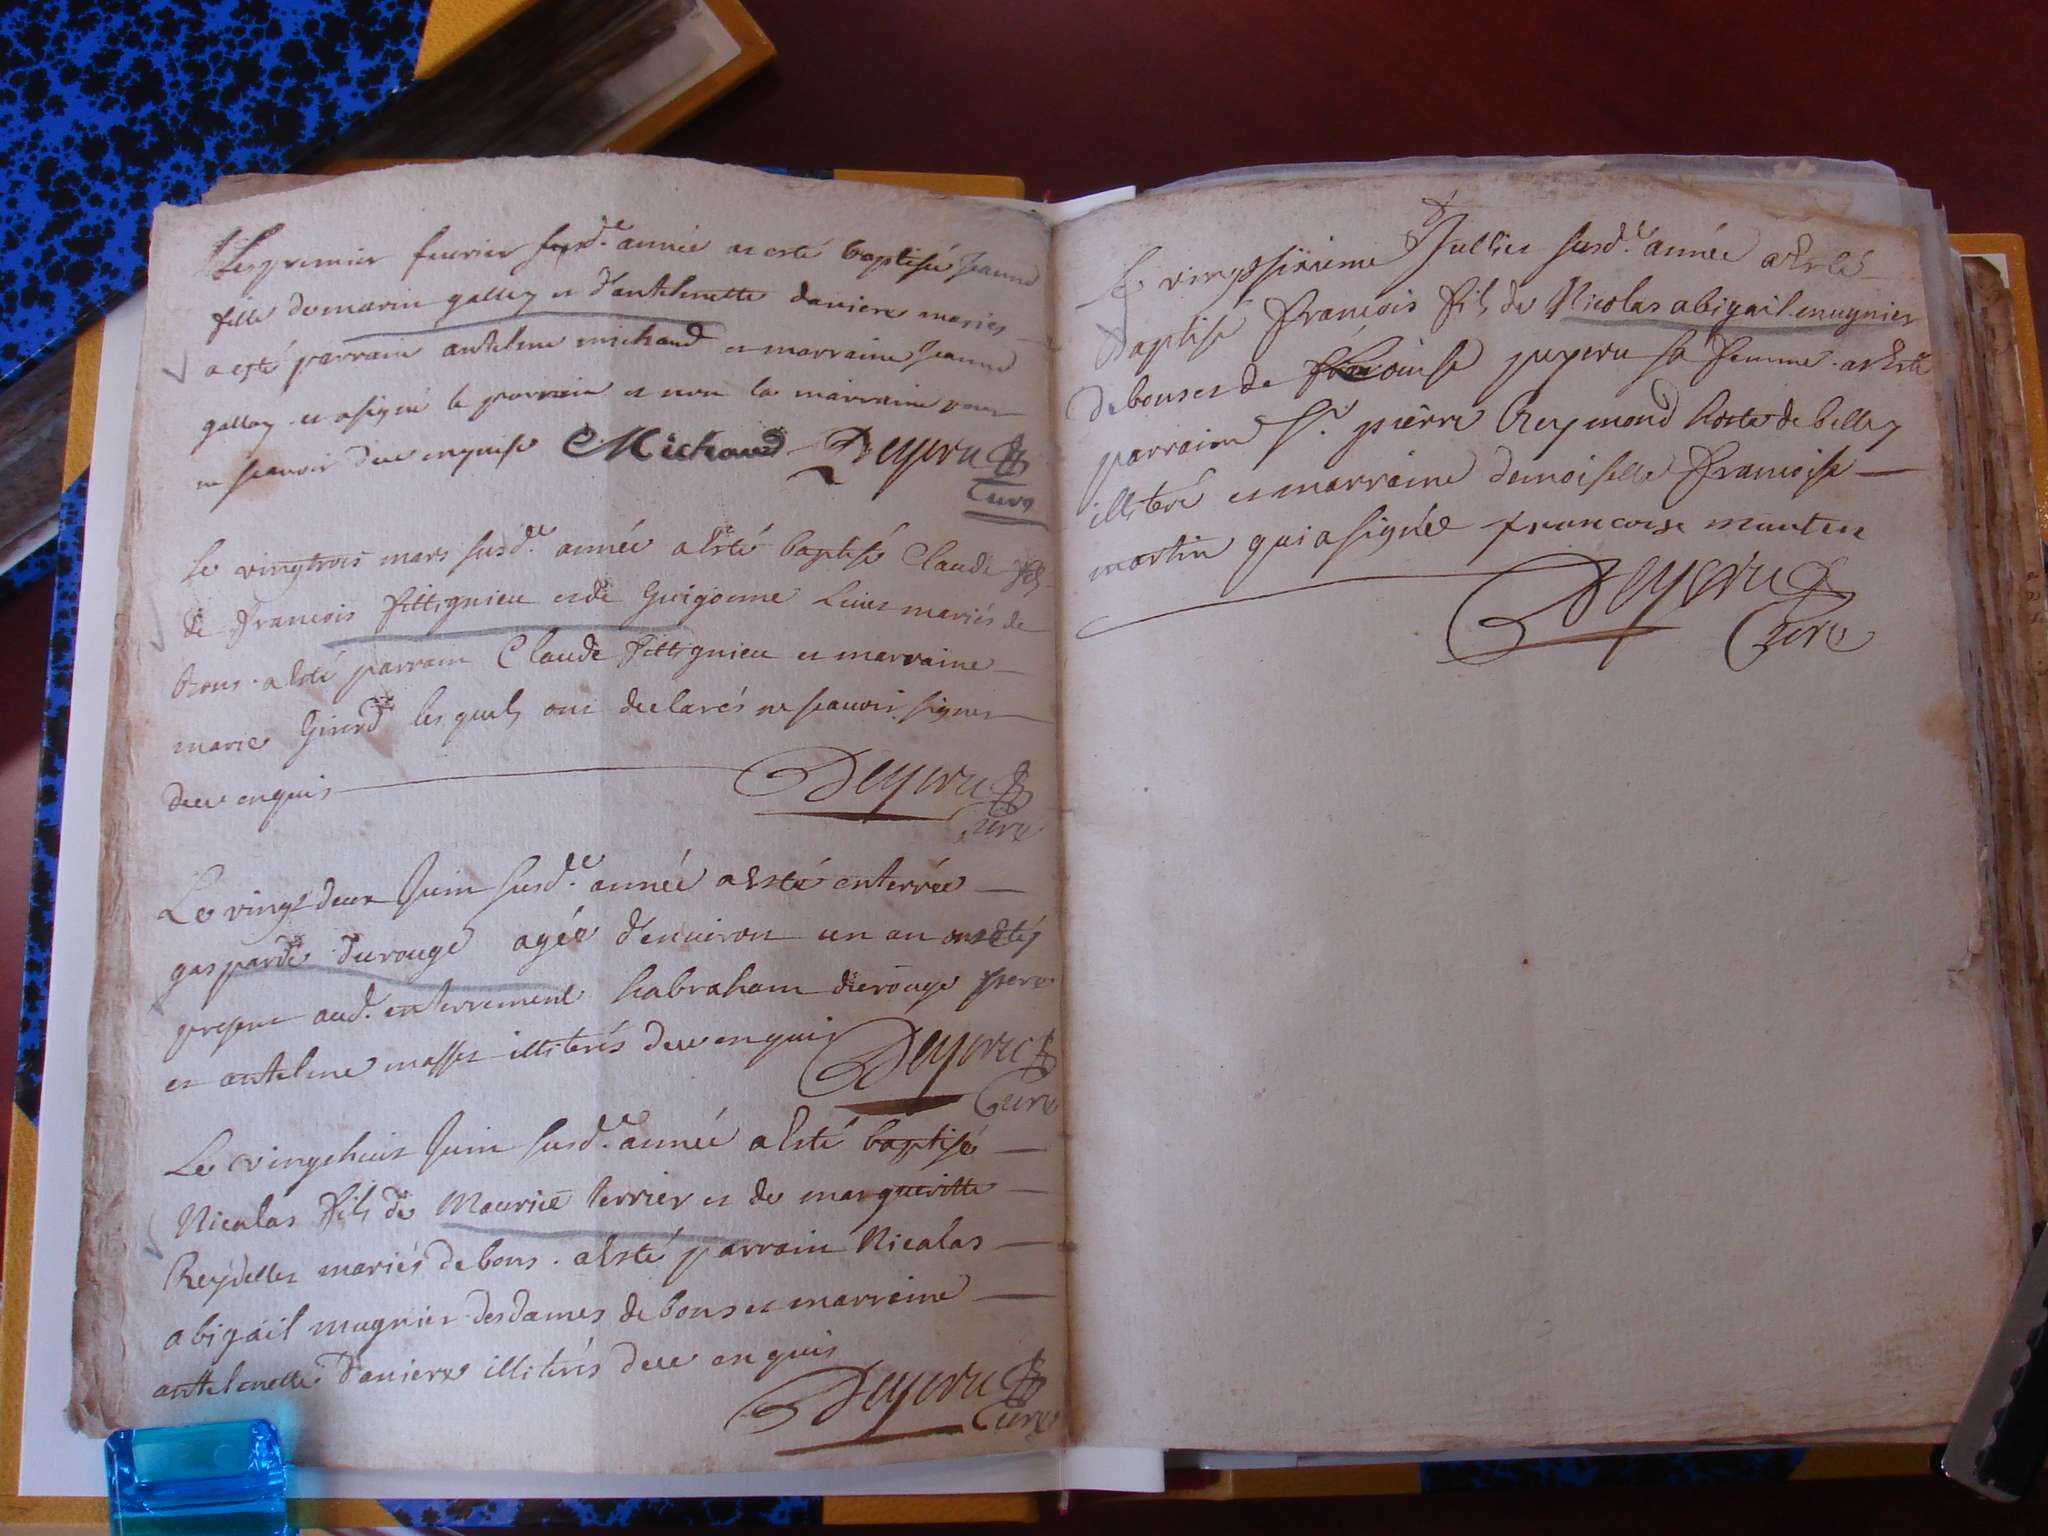 Les premier feurier susd.e année a esté baptisée Jeanne
fille de marin gallay et d'anthelmette daniere mariés
a esté parrain antelme michaud et marraine Jeanne
gallay et a signé le parrain et non la marraine pour
ne scavoir deue enquise Michaud Deyeru
Curé
Le vingtrois mars susd.e année a Esté baptisé Claude fils
de francois fittignieu et de Guigonne mariés de
Bons. a Esté parrain Claude fittignieu et marraine
marie Girerd les quels ont declarés ne scauoir signer
deue enquis Deyeru
Curé
Le vingt deux Juin susd.e année a Esté enterrée
gasparde durouge agée d'enuiron un an ont etés
present aud. enterrement habraham durouge pere
et antelme masse illiterés deue enquis Deyeru
Curé
Le vingthuit Juin susd.e année a Esté baptisé
Nicolas fils de Maurice terrier et de margueritte
Reydellet mariés de bons. a Esté parrain Nicolas
abigail mugnier des dames de bons et marraine
antelmette Daniere illiterés deue enquis
Deyeru
Curé
Le vingtsixieme Julliet susd.e année a Esté
Baptisé francois fils de Nicolas abigail mugnier
de bons et de sa femme. a Esté
parrain S.r pierre Reymond hoste de belley
illiteré et marraine demoiselle francoise
martin qui a signée francoise martin
Deyeru
Curé